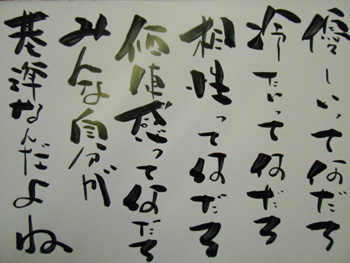 優しいって何だろ
冷たいって何だろ
相性って何だろ
価値感って何だろ
みんな自分が
基準なんだよね